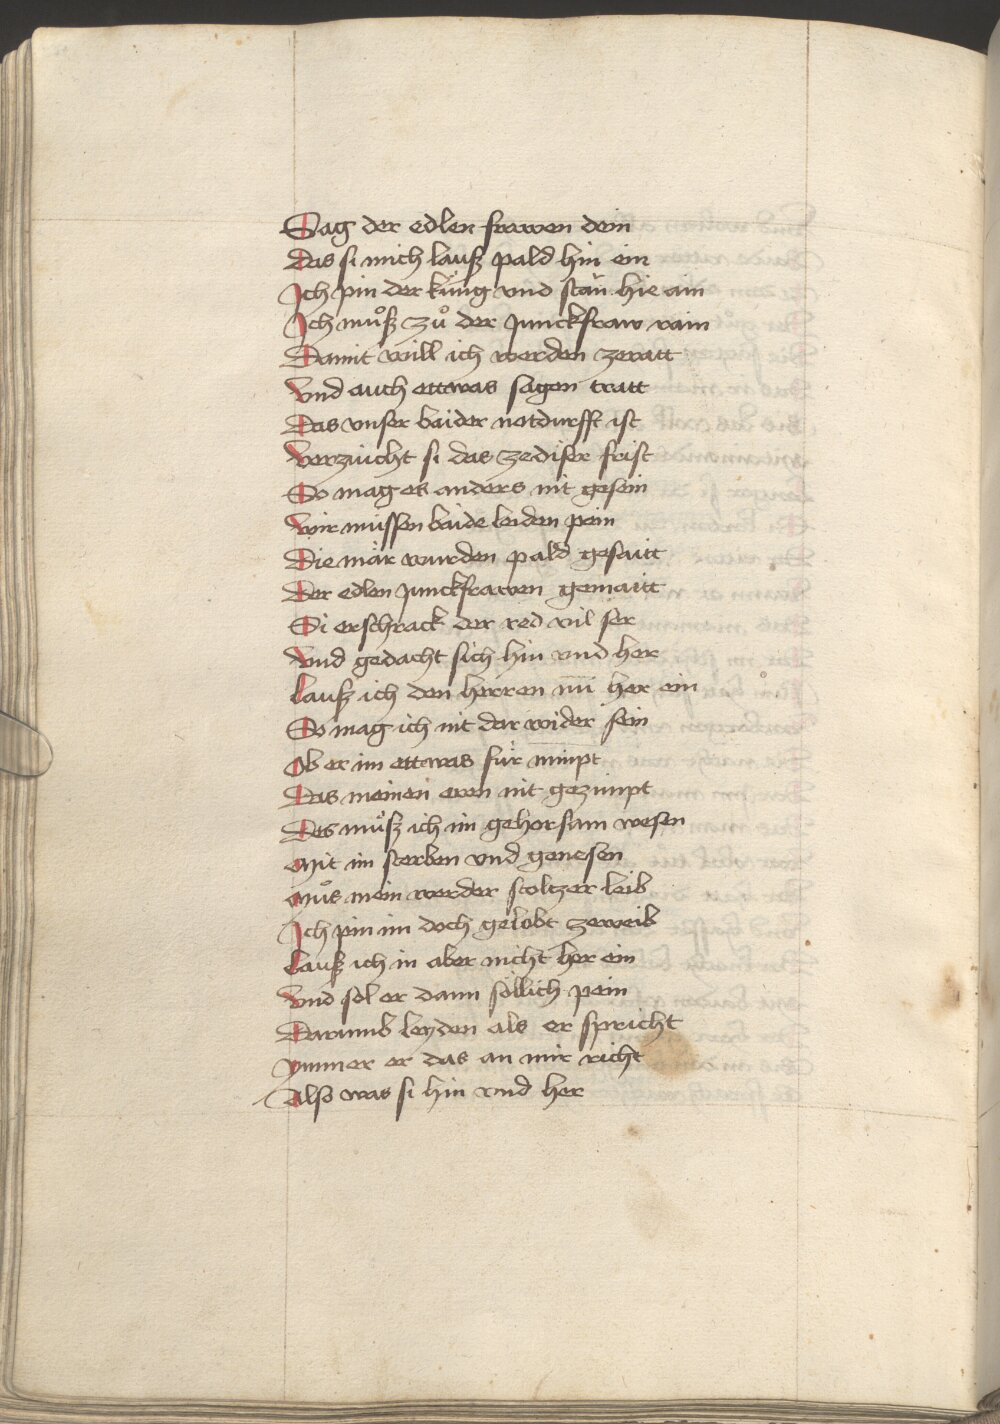 Sag der edlen frawen dein
Das si mich lauß pald hin ein
Ich pin der künig vnd stan hie ain
Ich muͦß zuͦ der junckfraw rain
Damit will ich werden zeratt
Vnd auch ettwas sagen tratt
Das vnser baider notdurfft ist
Verzuicht si das zediser frist
So mag es anders nit gesein
Wir müssen baide leiden pein
Die mär wurden pald gesaitt
Der edlen junckfrawen gemaitt
Si erschrack der red vil ser
Vnd gedacht sich hin vnd her
Lauß ich den herren nu her ein
So mag ich nit dar wider sein
Ob er im ettwas für nimpt
Das meinen eren nit gezimpt
Des muͦß ich im gehorsam wesen
Mit im sterben vnd genesen
Muͦs mein werder stoltzer leib
Ich pin im doch gelobt zeweib
Lauß ich in aber nicht her ein
Vnd sol er dann söllich pein
Darumb leyden als er spricht
Ymmer er das an mir richt
Also was si hin vnd her